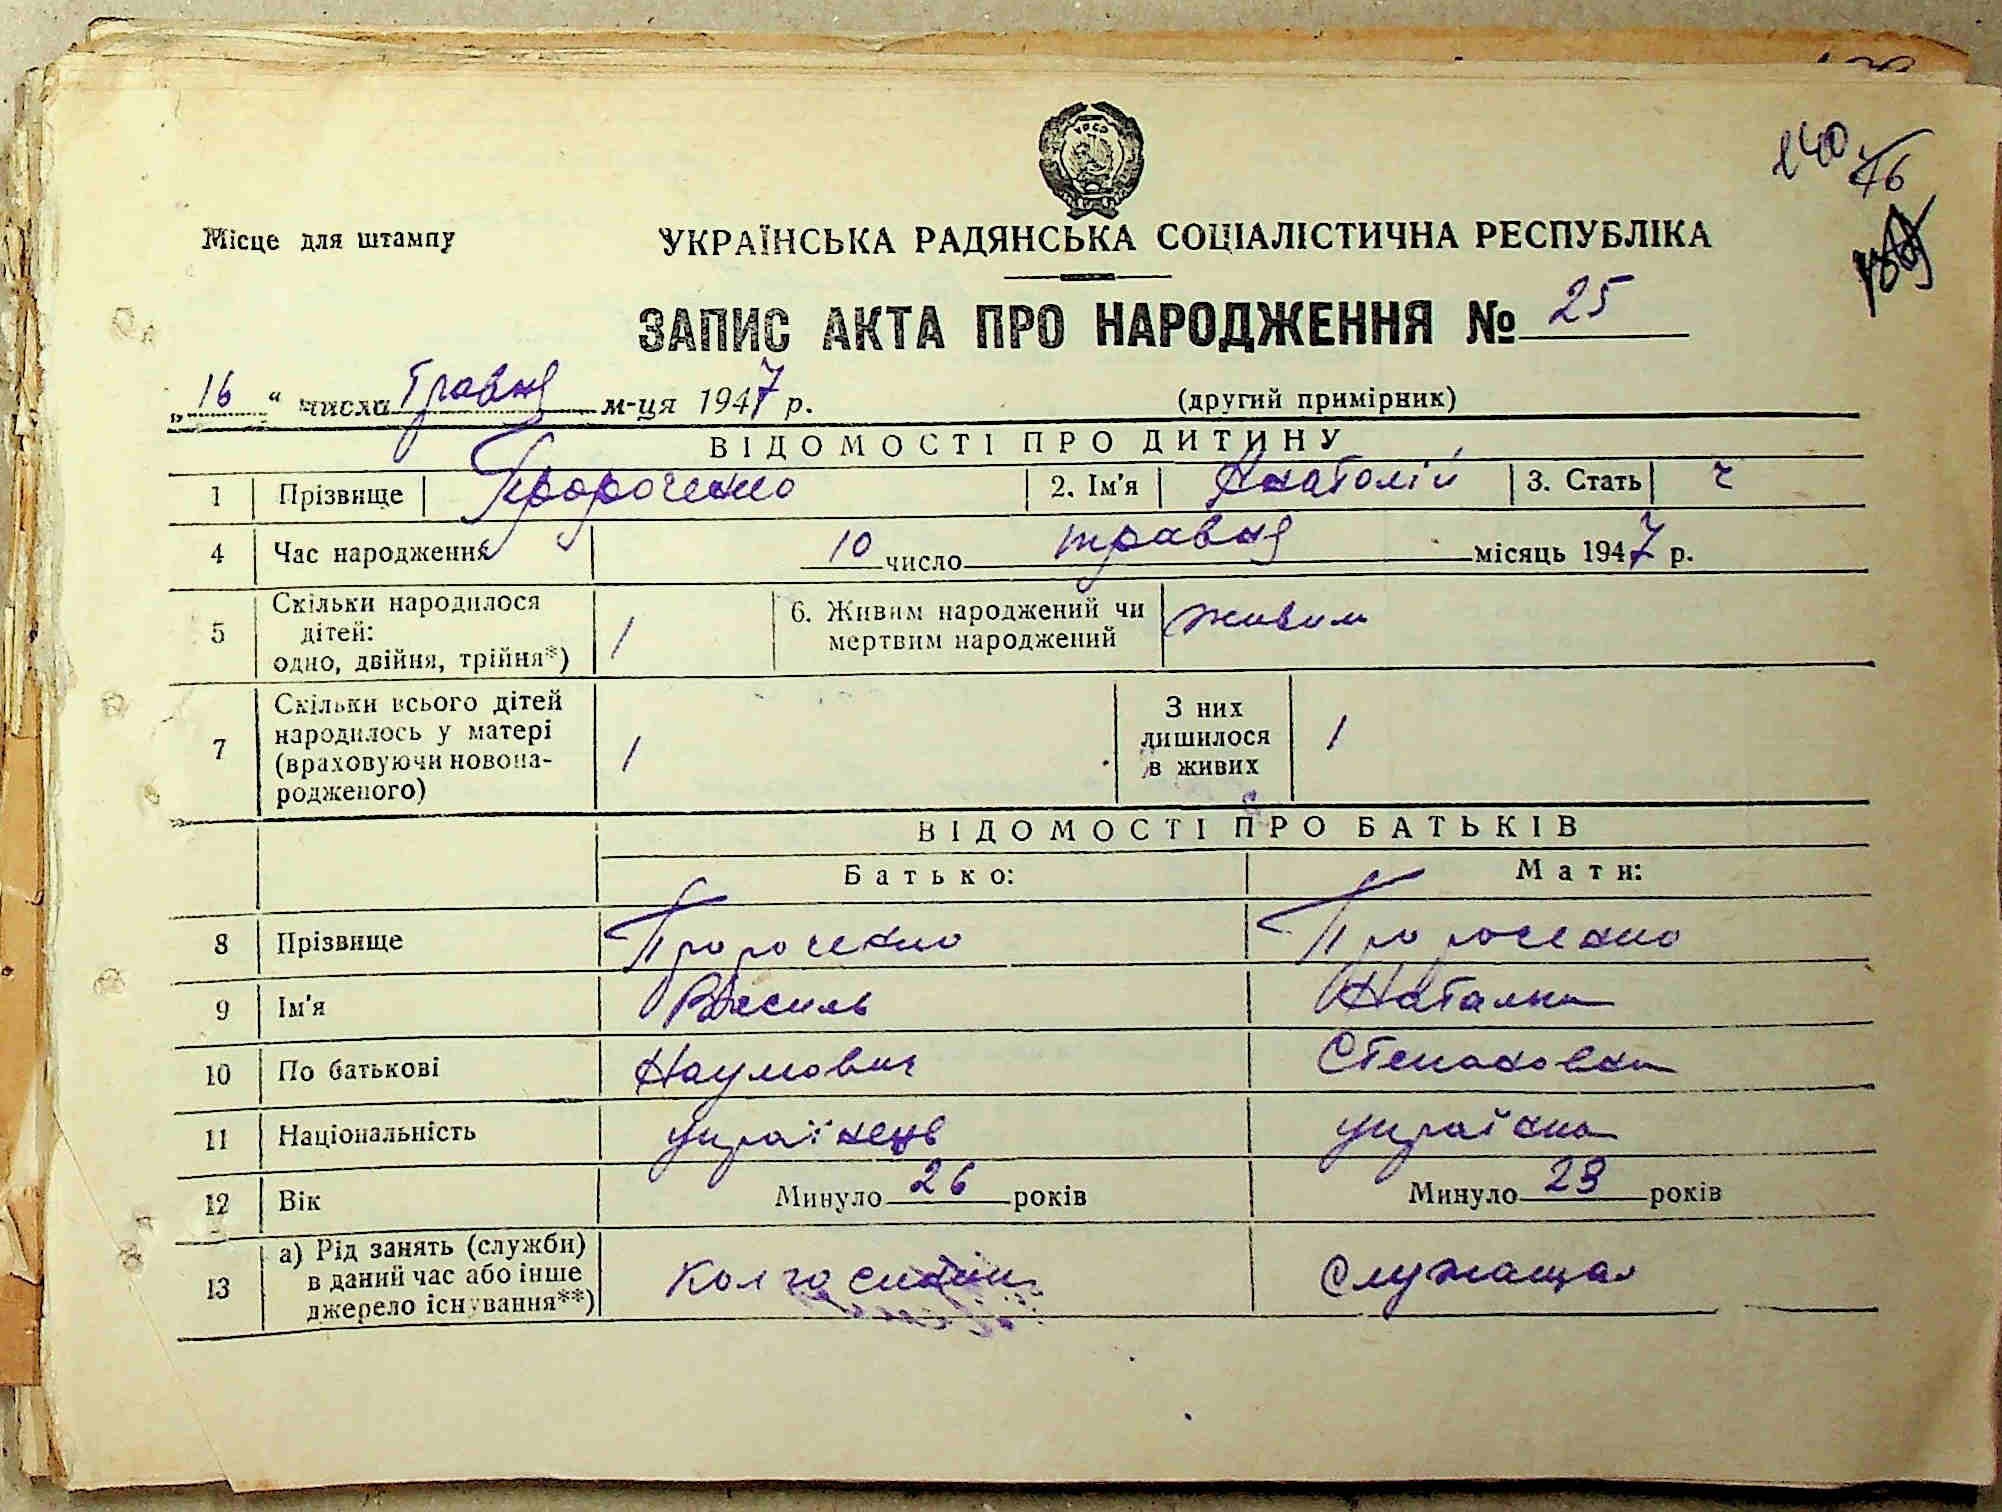 240/46
Місце для штампу
УКРАЇНСЬКА РАДЯНСЬКА СОЦІАЛІСТИЧНА РЕСПУБЛІКА
ЗАПИС АКТА ПРО НАРОДЖЕННЯ № 25
„16“ числа травня м-ця 1947 р. (другий примірник)
ВІДОМОСТІ ПРО ДИТИНУ
1 Прізвище Пророченко 2. Ім'я Анатолій 3. Стать ч
4 Час народження 10 число травня місяць 1947 р.
5 Скільки народилося дітей: одно, двійня, трійня*) 1 6. Живим народжений чи мертвим народжений живим
7 Скільки всього дітей народилось у матері (враховуючи новона-родженого) 1 З них лишилося в живих 1
ВІДОМОСТІ ПРО БАТЬКІВ
Батько: Мати:
8 Прізвище Пророченко Пророченко
9 Ім'я Василь Наталка
10 По батькові Наумович Степановна
11 Національність українець українка
12 Вік Минуло 26 років Минуло 23 років
13 а) Рід занять (служби) в даний час або інше джерело існування**) Колгоспник Служащая